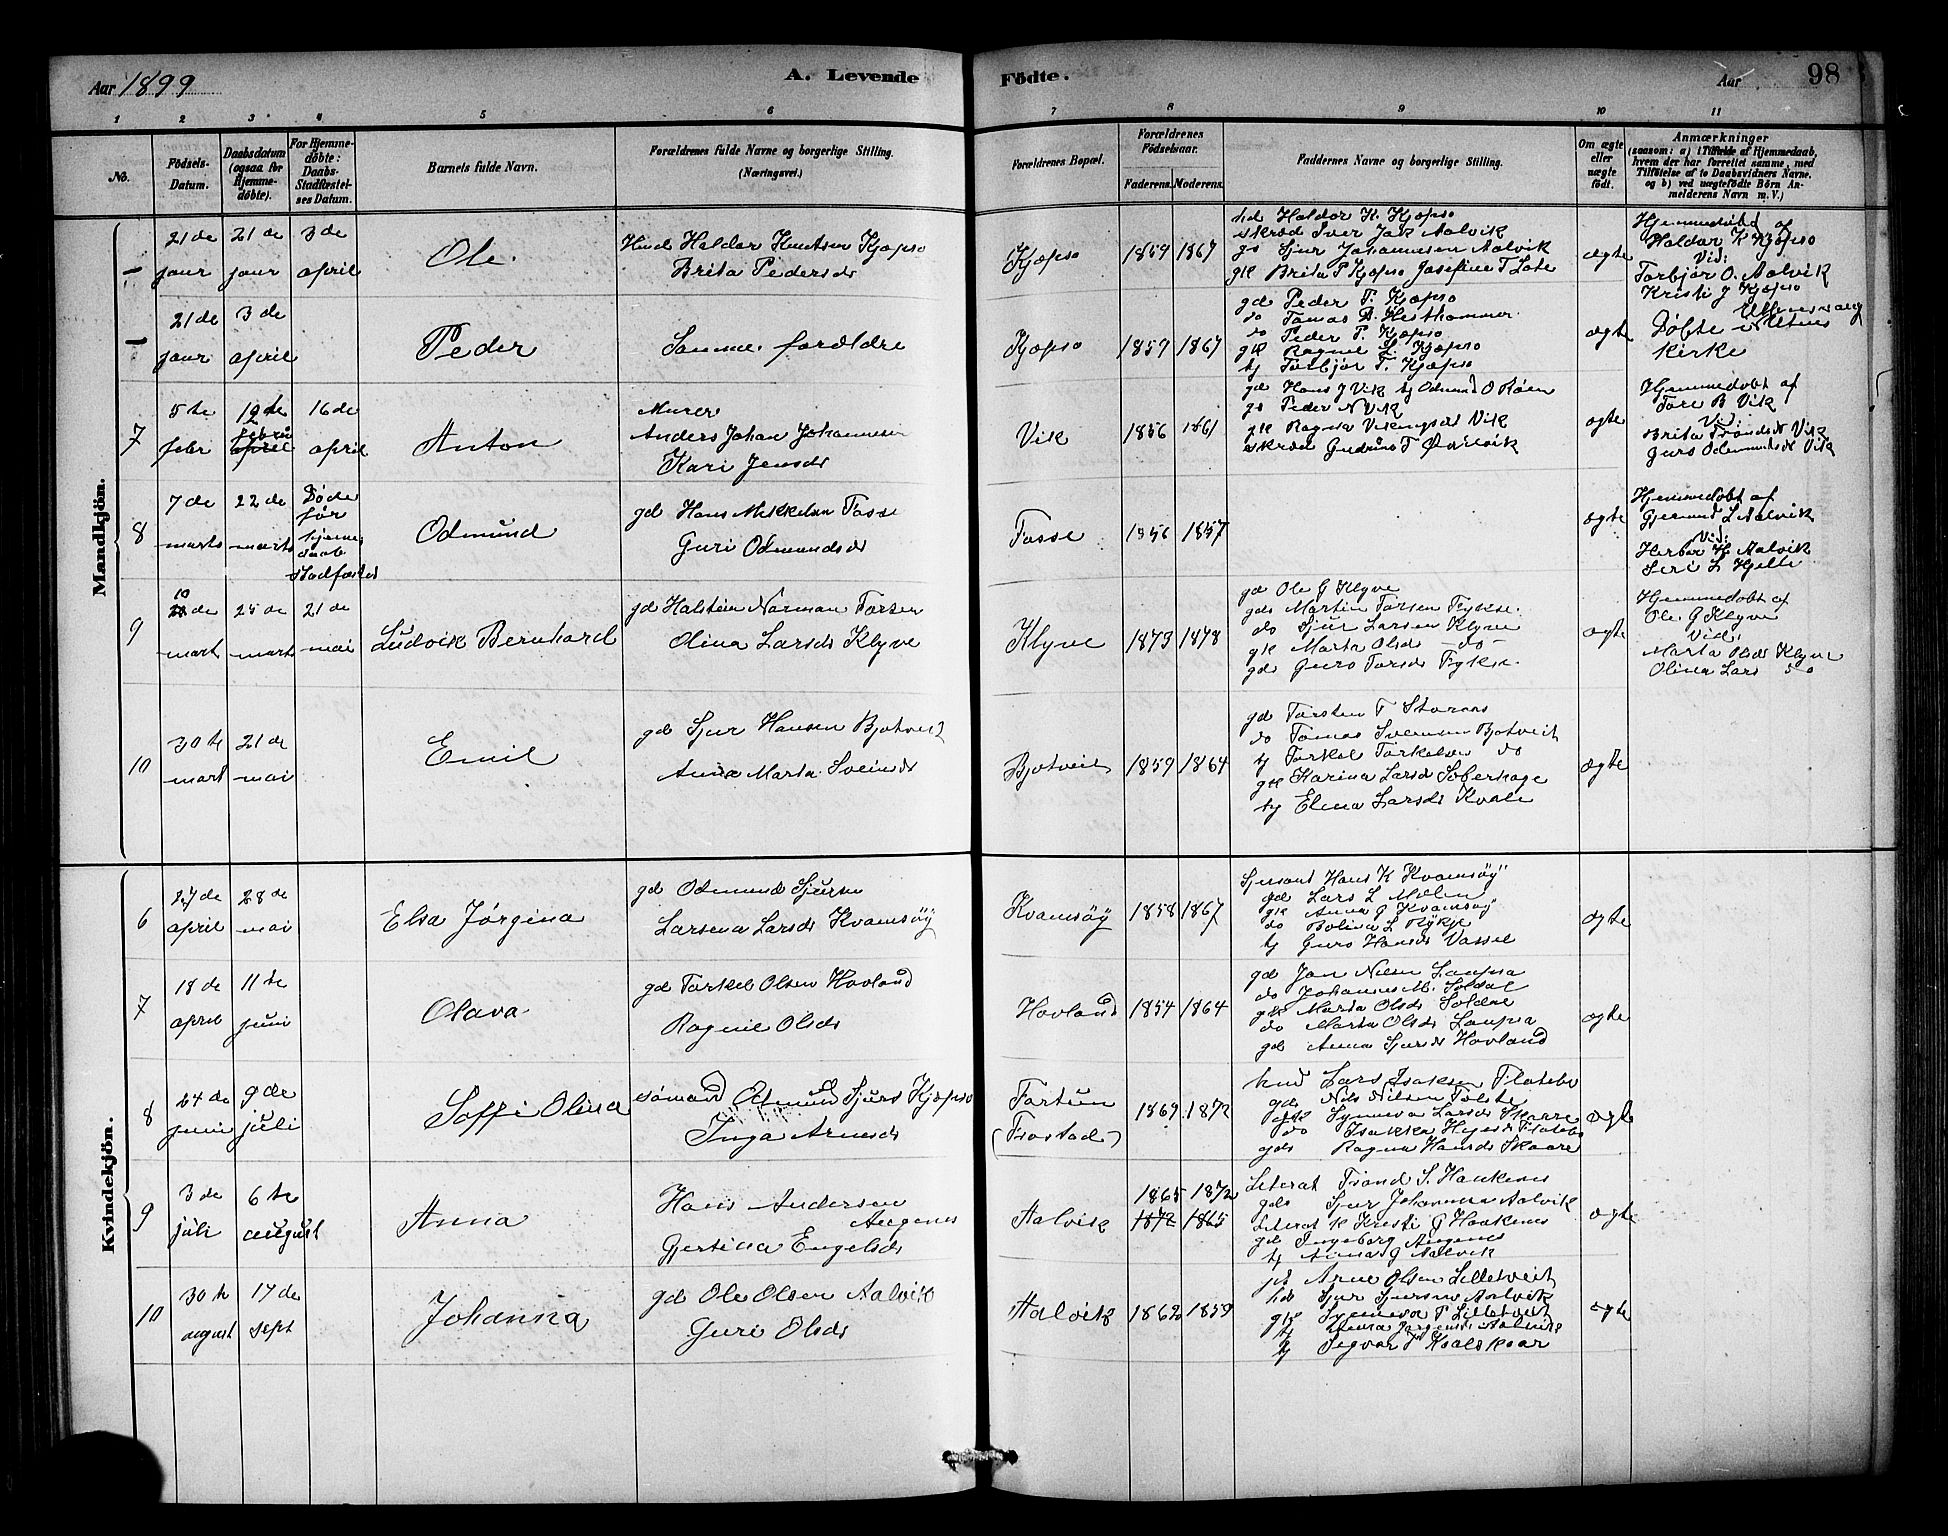 Aar 1899
A. Levende
Födte.
Aar
98
1 2 3 4 5 6 7 8 9 10 11
No.
Födsels-Datum.
Daabsdatum (ogsaa for Hjemmedöbte).
For Hjemmedöbte: Daabs-Stadfæstelses Datum.
Barnets fulde Navn.
Forældrenes fulde Navne og borgerlige Stilling.
(Næringsvei.)
Forældrenes Bopæl.
Forældrenes Födselsaar.
Faderens. Moderens.
Faddernes Navne og borgerlige Stilling.
Om ægte eller uægte födt.
Anmærkninger
(saasom: a) i Tilfælde af Hjemmedaab, hvem der har forrettet samme, med Tilföielse af to Daabsvidners Navne, og b) ved uægtefödte Börn Anmelderens Navn m. V.)
Mandkjön.
21 de jaur
21 de jaur
3 de april
Ole
Halder Knutsen Kjøpso
Brita Pedersds
Kjøpso
1859 1867
hd Haldor K. Kjøpso
skræd Iver Jak Aalvik
gs Sjur Johannesen Aalvik
gk Brita P Kjøpso Josefine T Lote
ægte
Hjemmedøbt af
Haldor K Kjøpso
Vid:
Torbjør O. Aalvik
Kristi J Kjøpso
21 de jaur
3 de april
Peder
Samme forældre
Kjøpso
1859 1867
gd Peder T. Kjøpso
do Tomas D. Hesthammer
do Peder P. Kjøpso
gk Ragne L. Kjøpso
tj Torbjør T. Kjøpso
ægte
Døbte i Utnes
kirke
7
5 te febr
12 te febru april
16 de april
Anton
Murer
Anders Johan Johannesen
Kari Jensds
Vik
1856 1861
gd Hans J Vik tj Odmund O Røen
gs Peder N Vik
gk Ragna Vikingsds Vik
skræd Gudrun T
ægte
Hjemmedøbt af
Tore B Vik
Vid:
Brita Trondsd Vik
Guro Odmundsd Vik
8
7 de marts
22 de marts
Døde før hjemmedaab stadfæstes
Odmund
gd Hans Mikkelsen Fosse
Guri Odmundsds
Fosse
1856 1857
ægte
Hjemmedøbt af
Gjermund L Aalvik
Vid:
Herbor H Aalvik
Siri L Hjelle
9
10 de mart
25 de mart
21 de mai
Ludvik Bernhard
gd Halstein Norman Torsen
Olina Larsds Klyve
Klyve
1873 1878
gd Ole G Klyve
gds Martin Torsen Fykse
do Sjur Larsen Klyve
gk Marta Olsds do
gds Guro Torsds Fykse
ægte
Hjemmedøbt af
Ole G Klyve
Vid:
Marta Olsds Klyve
Olina Lars do
10
30 te mart
21 de mai
Emil
gd Sjur Hansen Bjotveit
Anna Marta Sveinsds
Bjotveit
1859 1864
gd Torsten T
do Tomas Svensen Bjotveit
tj Torkel Torkelsen do
gk Karina Larsd Soberhage
tj Elena Larsds Kvale
ægte
Kvindekjön.
6
27 de april
28 de mai
Elsa Jørgina
gd Odmund Sjursen
Larsena Larsds Kvamsøy
Kvamsøy
1858 1867
Sjersant Hans K Kvamsøy
gd Lars L Molen
gk Anna G Kvamsøy
do Bolina L Rykje
tj Guro Hansds Vassel
ægte
7
18 de april
11 te juni
Olava
gd Torkel Olsen Hovland
Ragnie Olsds
Hovland
1854 1864
gd Jon Nilsen Laupsa
do Johannes M. Soldal
gk Marta Olsds Soldal
do Marta Olsds Laupsa
gd Anna Sjursds Hovland
ægte
8
24 de juni
9 de juli
Soffi Olina
sømand Odmund Sjurs Kjøpso
Inga Arnesds
Fortun
(Frostad)
1869 1872
hud Lars Isaksen Flatebø
gds Nils Nilsen Tolste
gk Synneva Larsds Skarre
do
gds Ragna Hansds Skaare
ægte
9
3 de juli
6 te august
Anna
Hans Andersen
Augenes
Gjertina Engelsds
Aalvik
1865 1872
1872 1865
Literat Trond S. Haukenes
gds Sjur Johannesen Aalvik
Literat k Kristi G Haukenes
gd Ingeborg Augenes
tj Anna G Aalvik
ægte
10
30 te august
17 de sept
Johanna
gd Ole Olsen Aalvik
Guri Olsds
Aalvik
1862 1859
gd Arne Olsen Lilletveit
hd Sjur Sjursen Aalvik
gk Synneva P Lilletveit
tj
tj Sigvar
ægte